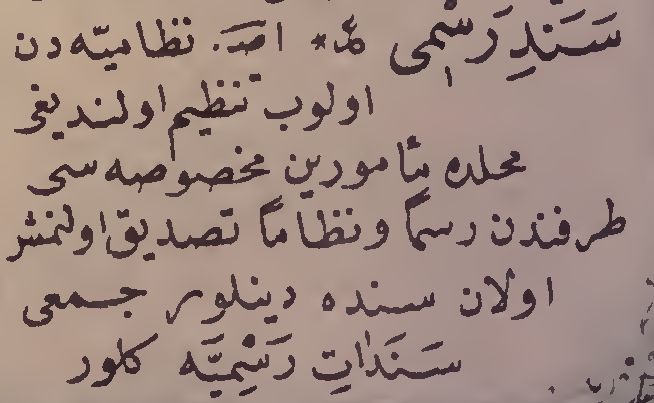 سَنَدِ رَسْمِی * اصـ. نظامیّه دن
اولوب تنظیم اولندیغی
محلده مأمورین مخصوصه سی
طرفندن رسماً ونظاماً تصدیق اولنمش
اولان سنده دینلور جمعی
سَنَدَاتِ رَسْمِیَّه کلور